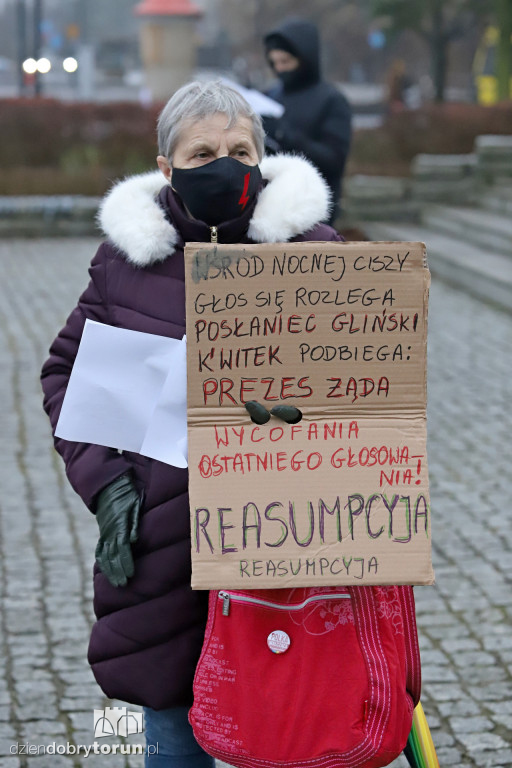 WŚRÓD NOCNEJ CISZY
GŁOS SIĘ ROZLEGA
POSŁANIEC GLIŃSKI
K'WITEK PODBIEGA:
PREZES ŻĄDA
WYCOFANIA
OSTATNIEGO GŁOSOWA-
NIA!
REASUMPCYJA
REASUMPCYJA
dziendobrytorun.pl